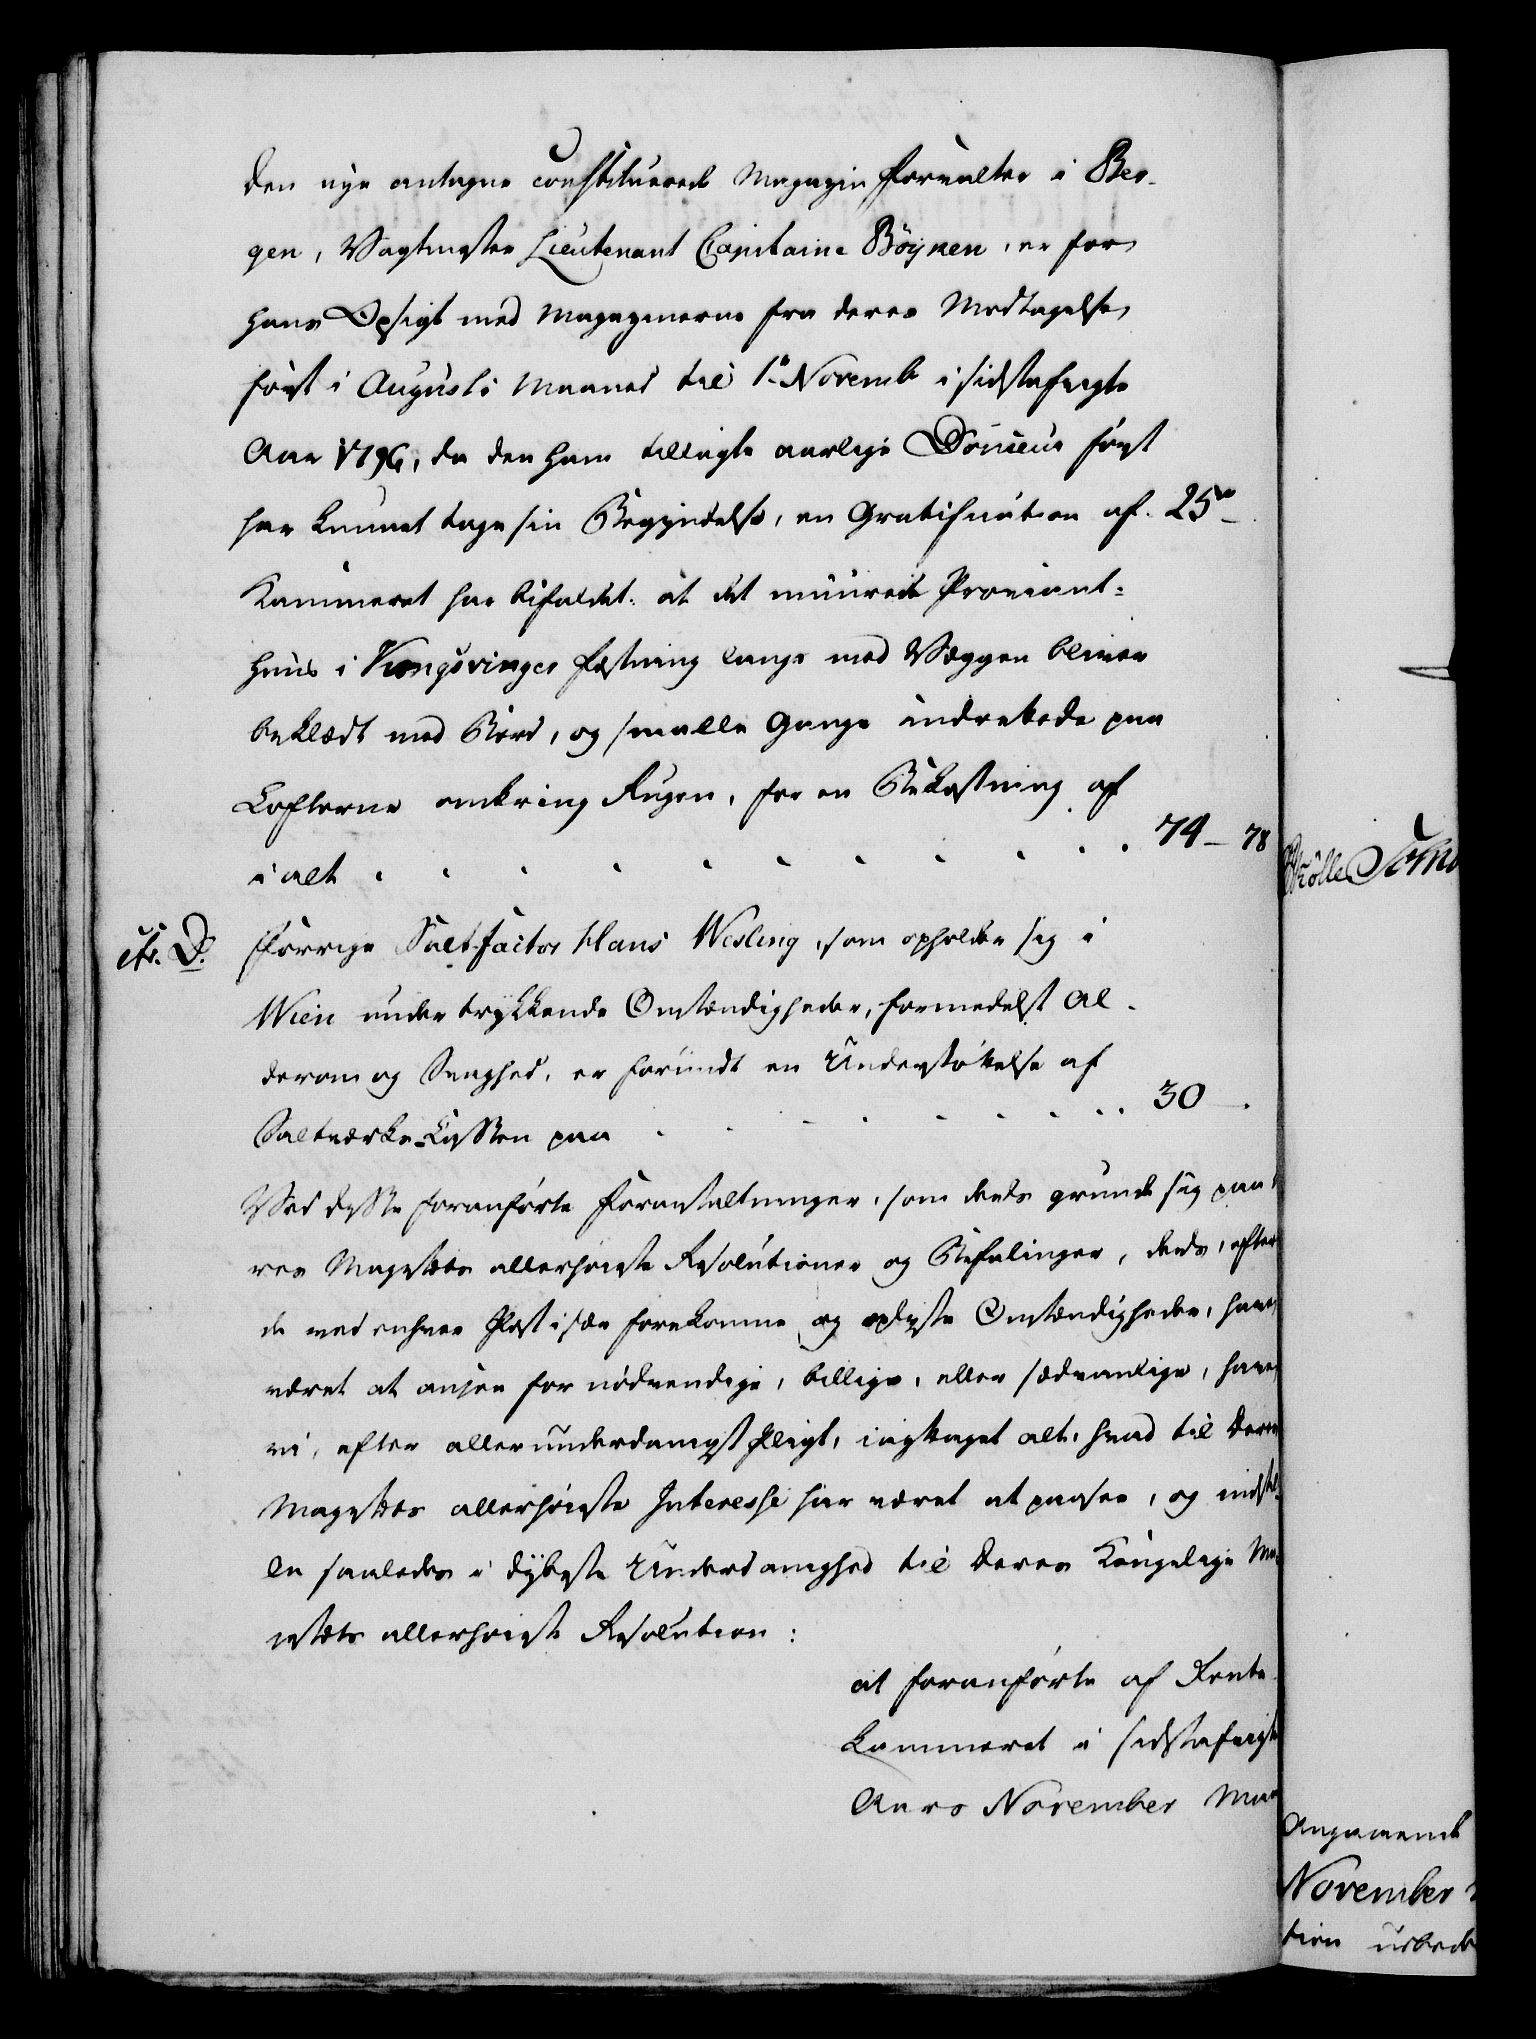 den nye antagne constituerede Magazin Forvalter i Ber-
gen, Vagtmester Lieutenant Capitaine Böyken, er for
hans Opsigt med Magazinerne fra deres Modtagelse
først i Augusti Maaned til 1ste Novemb i sidstafvigte
Aar 1796, da den ham tillagte aarlige Douceur først
har kunnet tage sin Begyndelse, en Gratification af. 25 rd
Kammeret har bifaldet: at det muurede Proviant-
Huus i Kongsvinger Fæstning langs med Væggen bliver
beklædt med Bord, og smalle Gange indrettede paa
Lofterne omkring Rugen, for en Bekostning af
i alt . . . . . . . . . . 74 - 78
itr. D. Forrige Salt-Factor Hans Wesling, som opholder sig i
Wien under trykkende Omstændigheder, formedelst Al-
derdom og Svaghed, er forundt en Understøttelse af
Saltværks-Cassen paa . . . . . . . . 30 -
Ved disse foranførte Foranstaltninger, som deels grunde sig paa
res Majestæts allerhøieste Resolutioner og Befalinger, deels, efter
de ved enhver Post især forekomne og oplyste Omstændigheder, have
været at ansee for nødvendige, billige, eller sædvanlige, have
vi, efter allerunderdanigst Pligt, iagttaget alt, hvad til Deres
Majestæts allerhøieste Interesse har været at paasee, og indstil-
le saaledes i dybeste Underdanighed til Deres Kongelige Ma-
jestæts allerhøieste Resolution:
at foranførte af Rente-
kammeret i sidstafvigte
Aars November Maa
Mölle
Angaaende
November
tion udbede